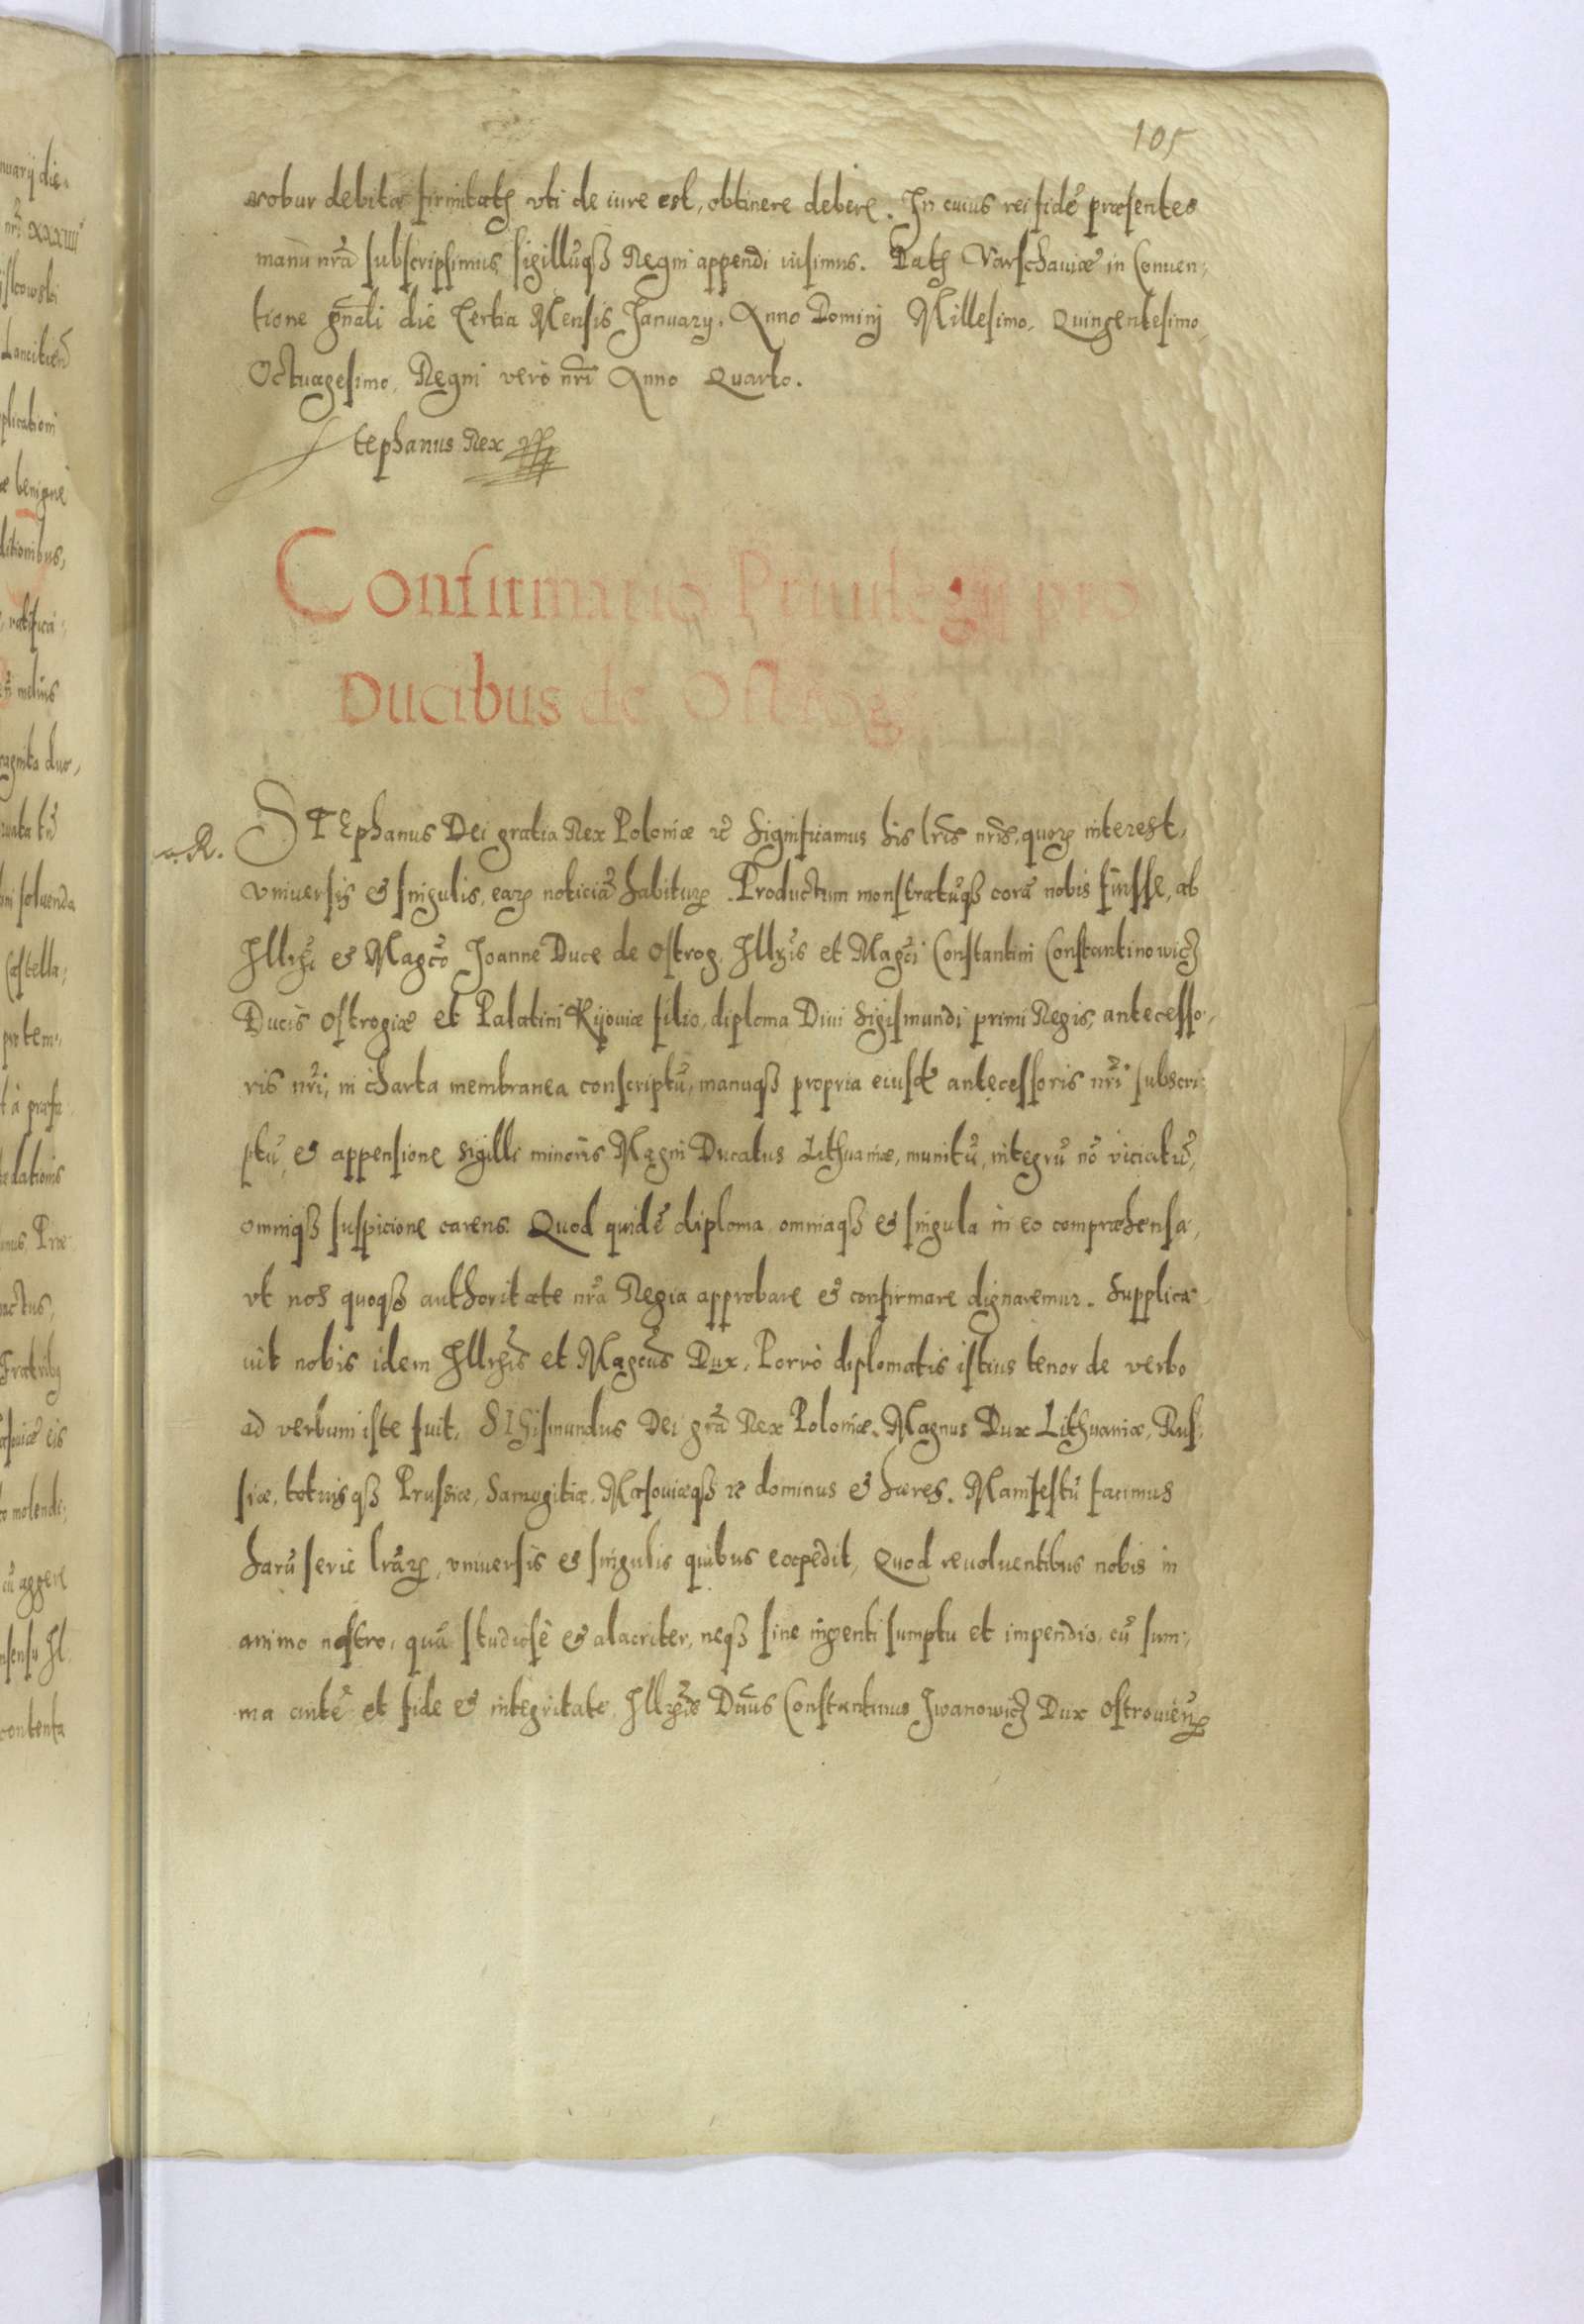 105
robur debitæ firmitatꝭ vti de iure est, obtinere deberꝭ. In cuius rei fidẽ præsentes
manu nrã subscripsimus sigillũqꝫ Regni appendi iussimus. Datꝭ Varschauiæ in Conuen,
tione gñali die tertia Mensis January. Anno Dominj Millesimo. Quingentesimo
Octuagesimo, Regni verò nrĩ Anno Quarto.
Stephanus Rex
Confirmatio Priuilegij pro
Ducibus de Ostrog
R. STEphanus Dei gratia Rex Poloniæ ꝛc̃ Significamus his lrĩs nrĩs, quorꝝ interest,
vniuersis & singulis, earꝝ noticiã habiturꝝ. Productum monstratũqꝫ corã nobis fuisse, ab
Illrĩ & Magcõ Joanne Duce de Ostrog, Illrĩs et Magcĩ Constantini Constantinowicz
Ducis Ostrogiæ et Palatini Kijouiæ filio, diploma Diui Sigismundi primi Regis, antecesso,
ris nrĩ, in charta membranea conscriptũ, manuqꝫ propria eiusdẽ antecessoris nrĩ subscri
ptũ, & appensione sigilli minoris Magni Ducatus Lithuaniæ, munitũ, integrũ nõ viciatũ,
omniqꝫ suspicione carens. Quod quidẽ diploma omniaqꝫ & singula in eo compræhensa,
vt nos quoqꝫ authoritate nrã Regia approbare & confirmare dignaremur. Supplica
uit nobis idem Illrĩs et Magcũs Dux. Porrò diplomatis istius tenor de verbo
ad verbum iste fuit. SIGismundus Dei grã Rex Poloniæ, Magnus Dux Lithuaniæ, Rus,
siæ, totiusqꝫ Prussiæ, Samogitiæ, Masouiæqꝫ ꝛc dominus & hæres. Manifestũ facimus
harũ serie lrãrꝝ, vniuersis & singulis quibus expedit, Quod reuoluentibus nobis in
animo nostro, quã studiosè & alacriter, neqꝫ sine ingenti sumptu et impendio, cũ sum,
ma cũ et fide & integritate Illrĩs Dñus Constantinus Iwanowicz Dux